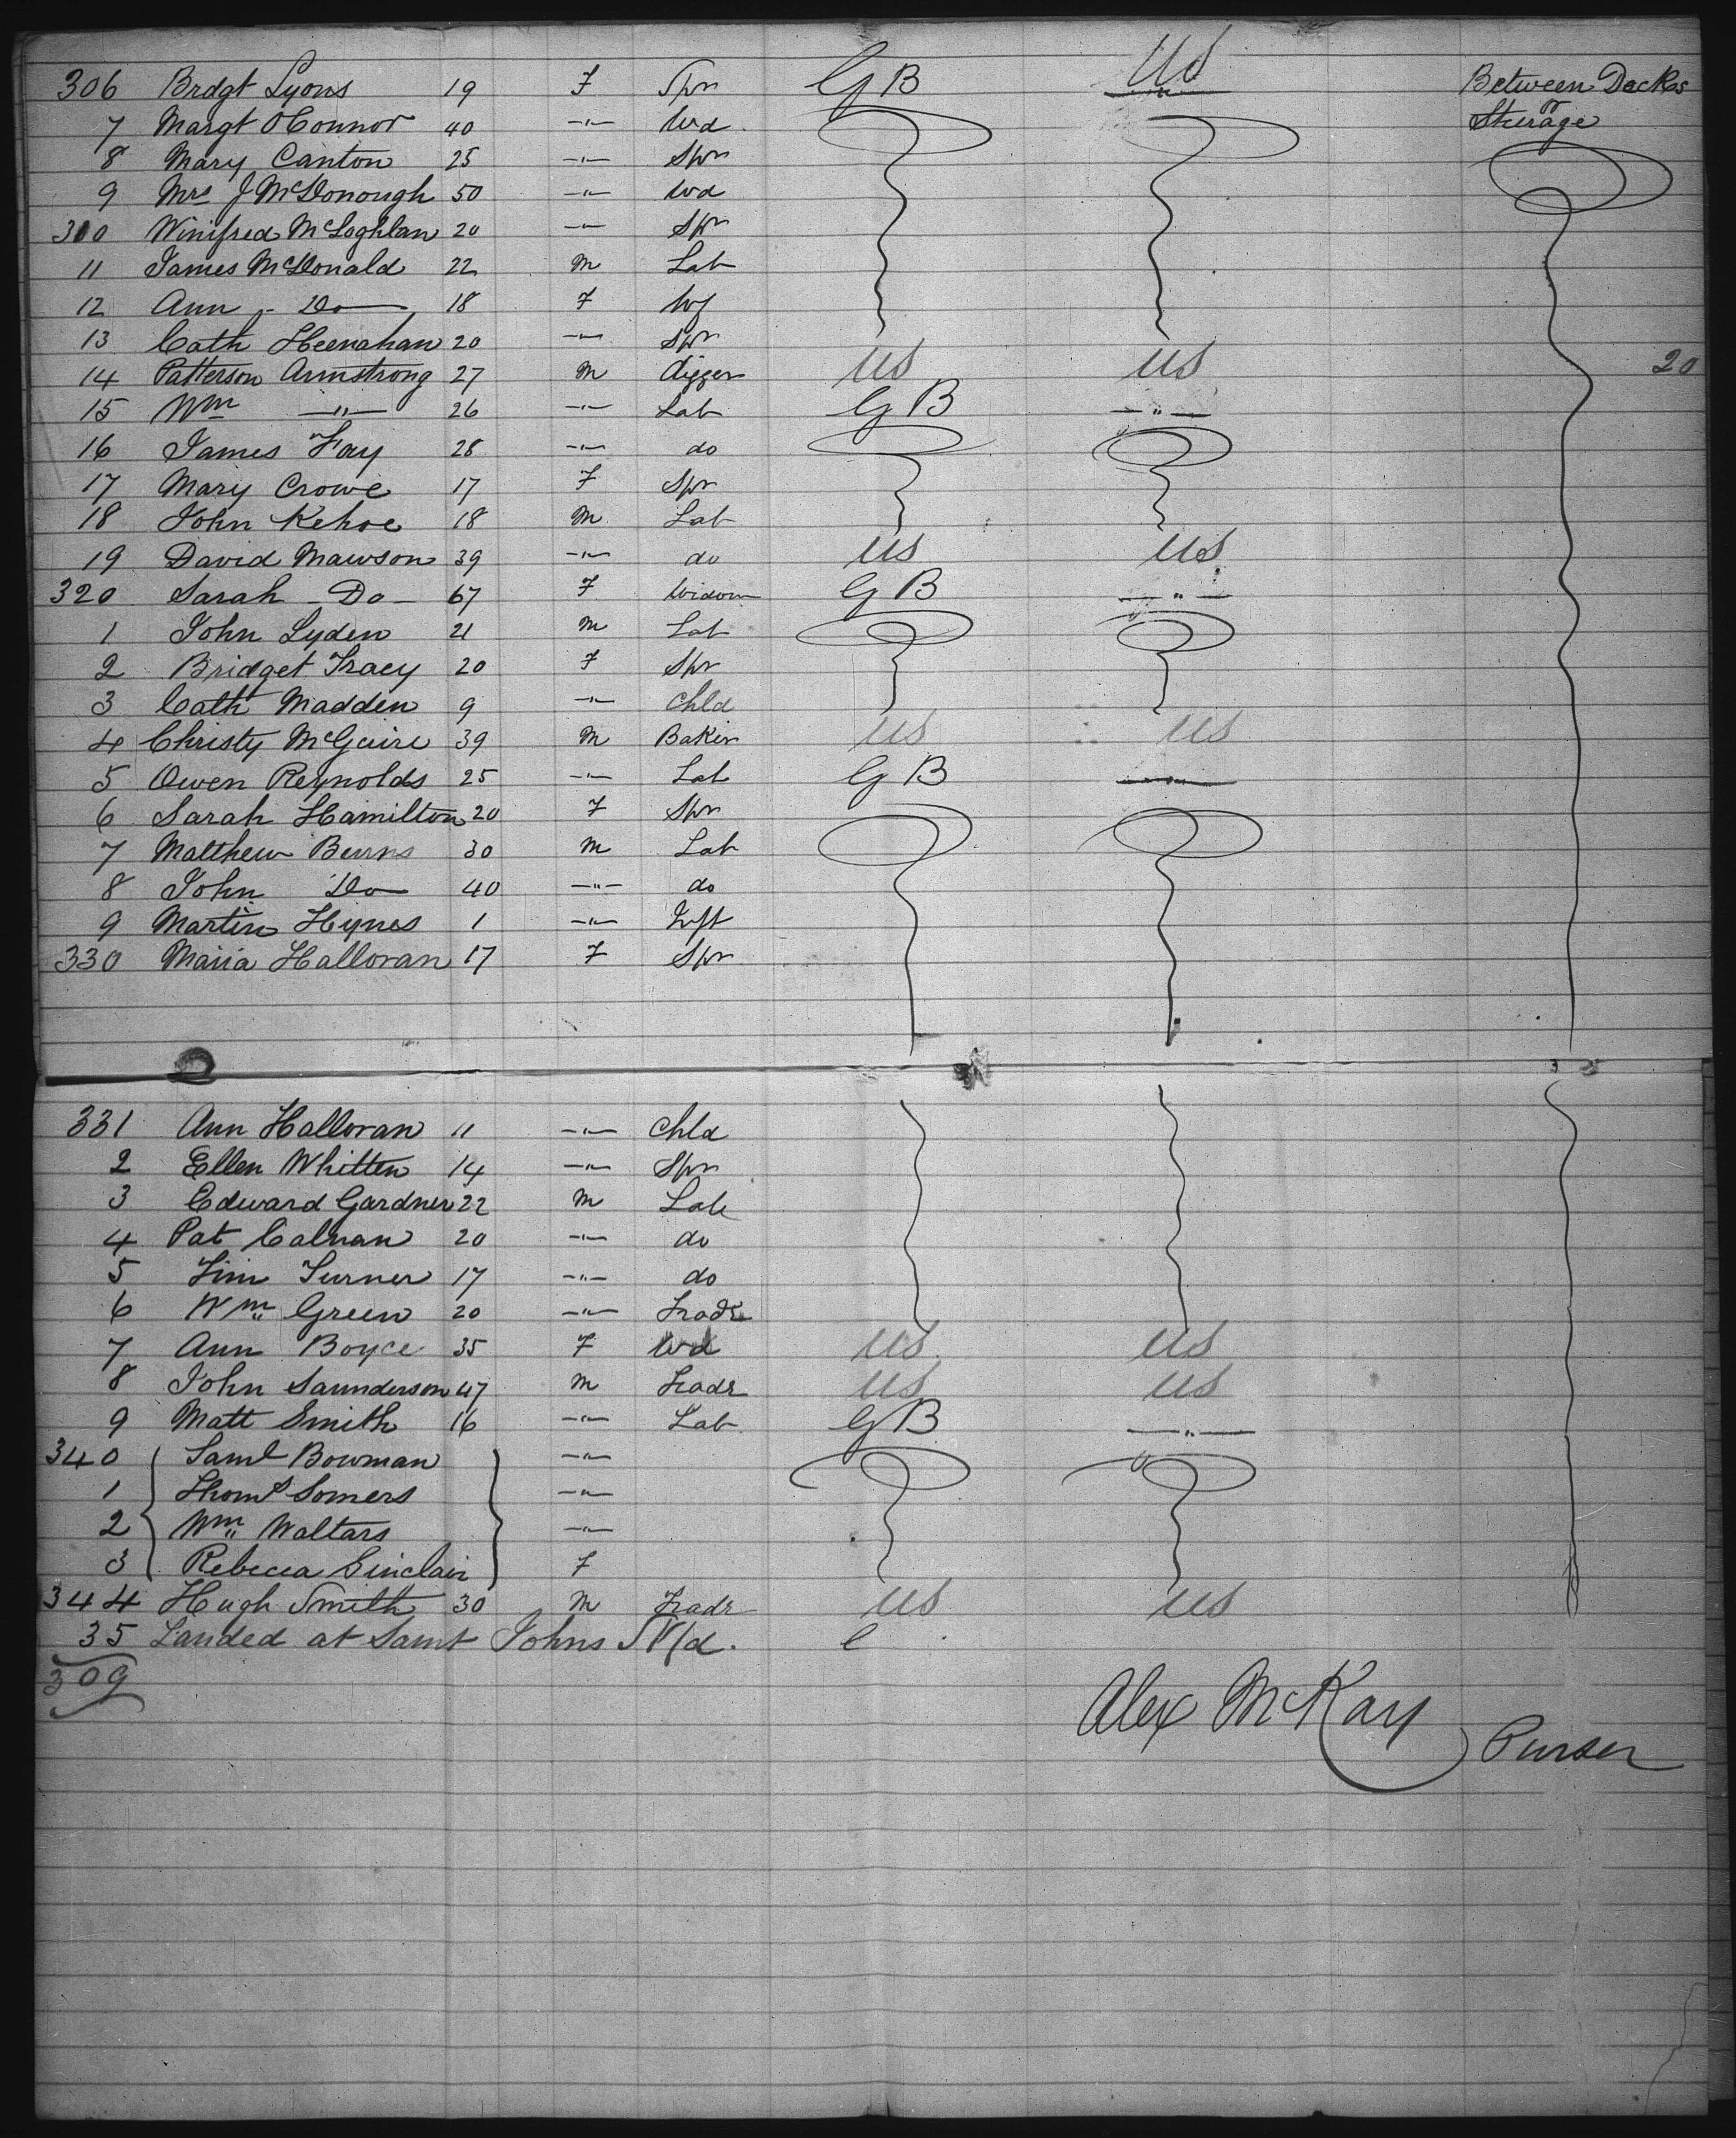 306 Brdgt Lyons 19 F Spr GB US Between Decks
or
7 Margt OConnor 40 —"— Wd Steerage
8 Mary Canton 25 —"— Spr
9 Mrs J McDonough 50 —"— Wd
310 Winifred McLoghlan 20 —"— Spr
11 James McDonald 22 M Lab
12 Ann - Do — 18 F Wf
13 Cath Heenahan 20 —"— Spr
14 Patterson Armstrong 27 M digger US US 20
15 Wm —"— 26 —"— Lab GB —"—
16 James Fay 28 —"— do
17 Mary Crowe 17 F Spr
18 John Kehoe 18 M Lab
19 David Mawson 39 —"— do US US
320 Sarah - Do - 67 F Widow GB —"—
1 John Lyden 21 M Lab
2 Bridget Tracy 20 F Spr
3 Cath Madden 9 —"— Chld
4 Christy McGuire 39 M Baker US US
5 Owen Reynolds 25 —"— Lab GB —"—
6 Sarah Hamilton 20 F Spr
7 Matthew Burns 30 M Lab
8 John Do 40 —"— do
9 Martin Hynes 1 —"— Inft
330 Maria Halloran 17 F Spr
331 Ann Halloran 11 —"— Chld
2 Ellen Whitten 14 —"— Spr
3 Edward Gardner 22 M Lab
4 Pat Calnan 20 —"— do
5 Jim Turner 17 —"— do
6 Wm Green 20 —"— Tradr
7 Ann Boyce 35 F Wd US US
8 John Saunderson 47 M Tradr US US
9 Matt Smith 16 —"— Lab GB —"—
340 Saml Bowman —"—
1 Thoms Somers —"—
2 Wm Waltars —"—
3 Rebecca Sinclair F
344 Hugh Smith 30 M Tradr US US
35 Landed at Saint Johns Nfd.
309
Alex McKay Purser